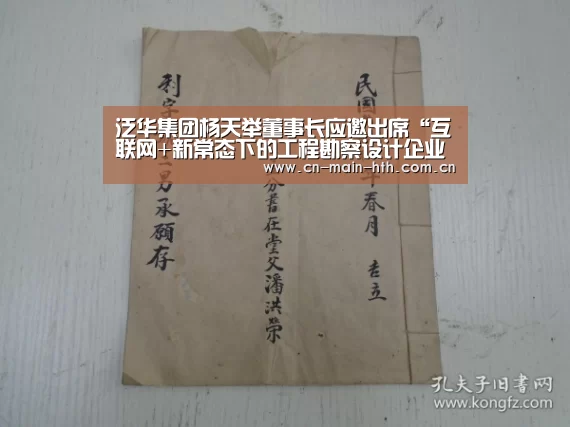 民國
年春月 吉立
分書在堂父潘洪榮
利字
男承願存
泛华集团杨天举董事长应邀出席“互
联网+新常态下的工程勘察设计企业
www.cn-main-hth.com.cn
孔夫子旧书网
www.kongfz.com